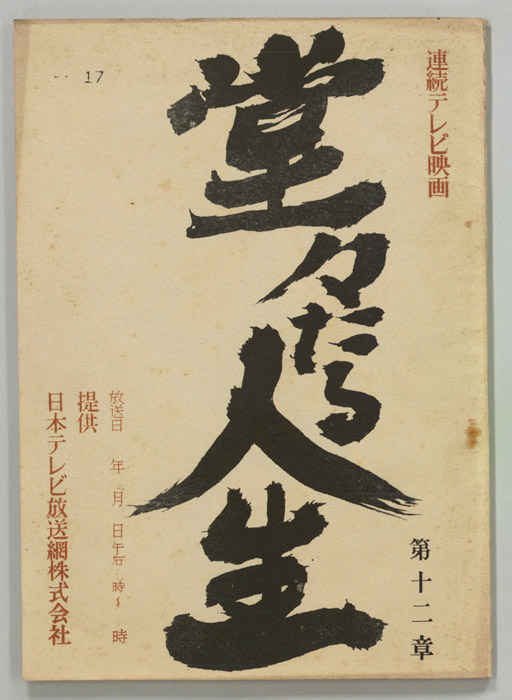 連続テレビ映画
堂々たる人生
第十二章
放送日 年 月 日午后 時〜 時
提供
日本テレビ放送網株式会社
17